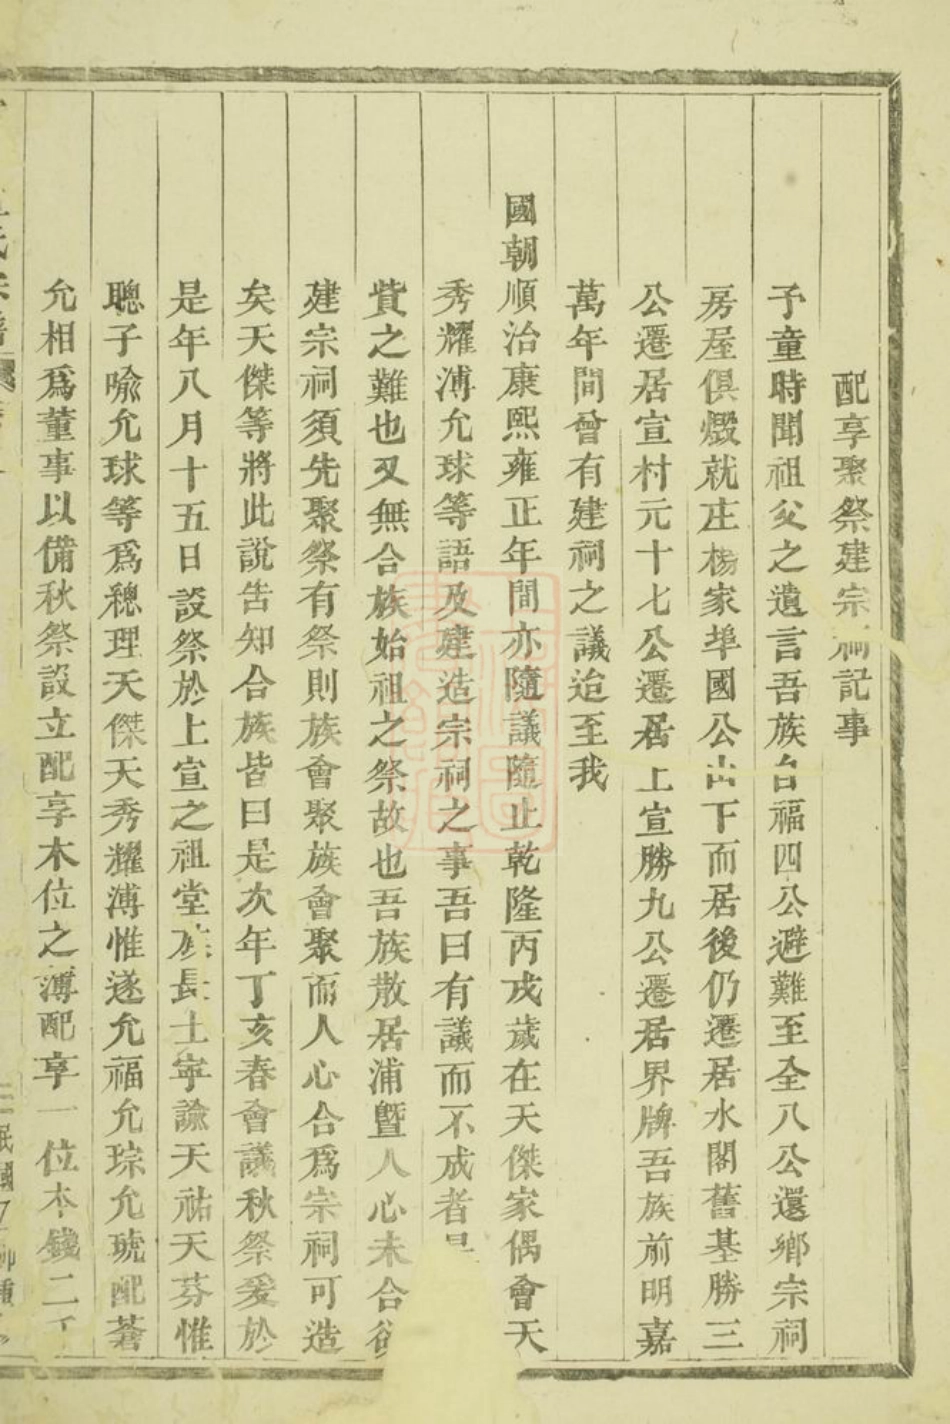 配享聚祭建宗祠記事
予童時聞祖父之遺言吾族台福四公避難至全八公還鄉宗祠
房屋俱燬就庄楊家埠國公山下而居後仍遷居水閣舊基勝三
公遷居宣村元十七公遷居上宣勝九公遷居界牌吾族前明嘉
萬年間曾有建祠之議迨至我
國朝順治康熙雍正年間亦隨議隨止乾隆丙戌歲在天傑家偶會天
秀耀溥允球等語及建造宗祠之事吾曰有議而不成者
貲之難也又無合族始祖之祭故也吾族散居浦曁人心未合欲
建宗祠須先聚祭有祭則族會聚族會聚而人心合爲宗祠可造
矣天傑等將此說告知合族皆曰是次年丁亥春會議秋祭爰於
是年八月十五日設祭於上宣之祖堂族長士寧諭天祐天芬惟
聰子喩允球等爲總理天傑天秀耀溥惟遂允福允琮允琥配蒼
允相爲董事以備秋祭設立配享木位之薄配享一位本錢二